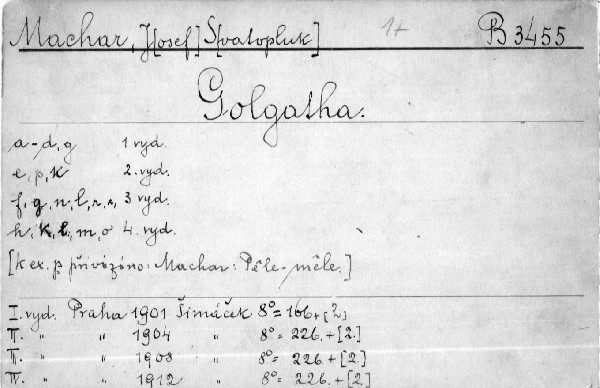 Machar, J[osef] S[vatopluk] 1+ B 3455
Golgatha.
a-d, g 1 vyd.
e, p, k 2. vyd.
f, g, n, l, r, s, 3 vyd.
h, k, l, m, o 4. vyd.
[k ex. p přivázáno: Machar: Pêle-mêle.]
I. vyd. Praha 1901 Šimáček 8°= 166 + [2]
II. " " 1904 " 8°= 226. + [2.]
II. " " 1908 " 8°= 226. + [2.]
IV. " " 1912 " 8°= 226. + [2]